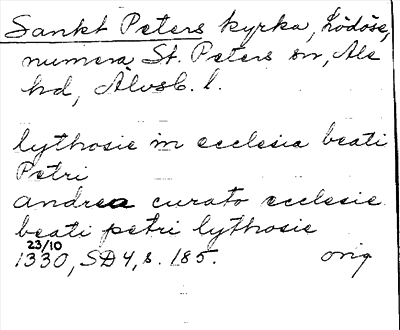 Sankt Peters kyrka, Lödöse,
numera St. Peters sn, Ale
hd, Älvsb. l.
lythosie in ecclesia beati
Petri
andrea curato ecclesie
beati petri lythosie
23/10
1330, SD 4, s. 185. orig